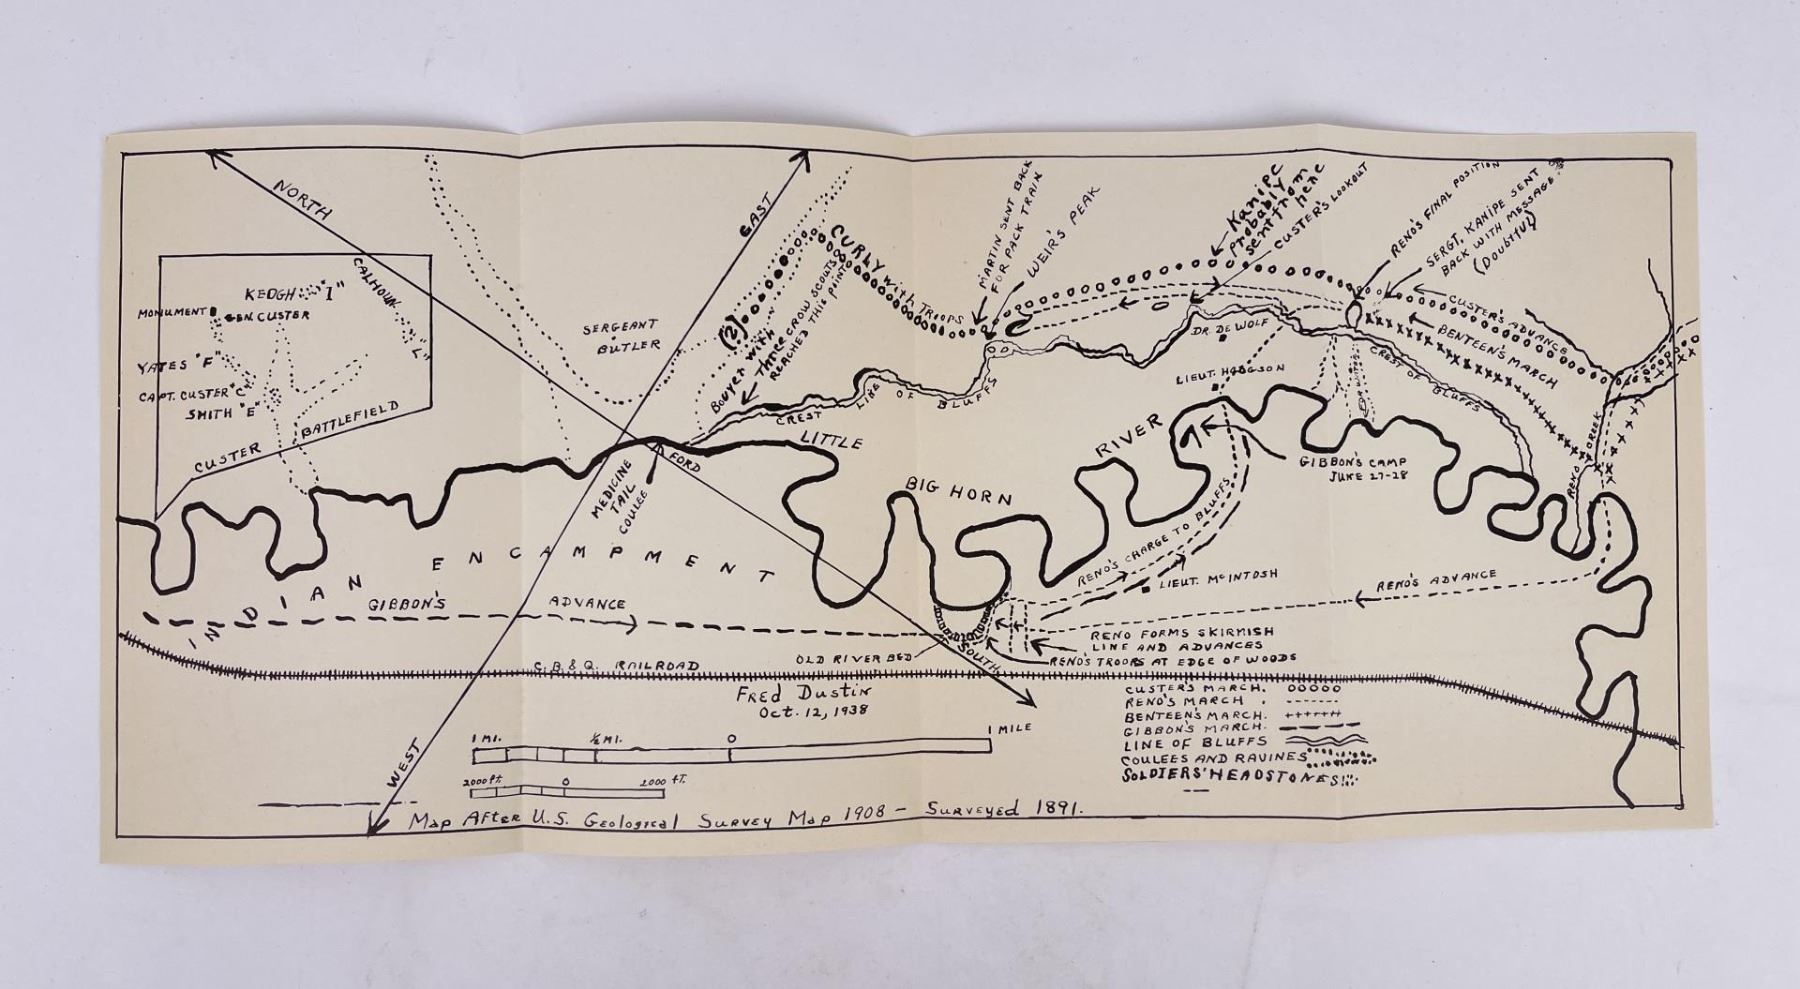 NORTH
EAST
WEST
SOUTH
KEOGH "I"
CALHOUN "L"
MONUMENT
GEN. CUSTER
YATES "F"
CAPT. CUSTER "C"
SMITH "E"
CUSTER BATTLEFIELD
SERGEANT
BUTLER
(?)
Bouyer with
three crow scouts
reached this point
CURLY with TROOPS
MARTIN SENT BACK
FOR PACK TRAIN
WEIR'S PEAK
Kanipe
probably
sent from
here
CUSTER'S LOOKOUT
RENO'S FINAL POSITION
SERGT. KANIPE SENT
BACK WITH MESSAGE
(Doubtful)
CUSTER'S ADVANCE
BENTEEN'S MARCH
CREST OF BLUFFS
DR. DE WOLF
LIEUT. HODGSON
CREST LINE OF BLUFFS
RENO CREEK
LITTLE
BIG HORN
RIVER
FORD
MEDICINE
TAIL
COULEE
GIBBON'S CAMP
JUNE 27-28
INDIAN ENCAMPMENT
GIBBON'S ADVANCE
RENO'S CHARGE TO BLUFFS
LIEUT. McINTOSH
RENO'S ADVANCE
RENO FORMS SKIRMISH
LINE AND ADVANCES
RENO'S TROOPS AT EDGE OF WOODS
OLD RIVER BED
C.B.& Q. RAILROAD
Fred Dustin
Oct. 12, 1938
CUSTER'S MARCH.
RENO'S MARCH.
BENTEEN'S MARCH.
GIBBON'S MARCH.
LINE OF BLUFFS
COULEES AND RAVINES
SOLDIERS' HEADSTONES
1 MI. ½ MI. 0 1 MILE
2000 ft. 0 2000 FT.
Map After U.S. Geological Survey Map 1908 – Surveyed 1891.